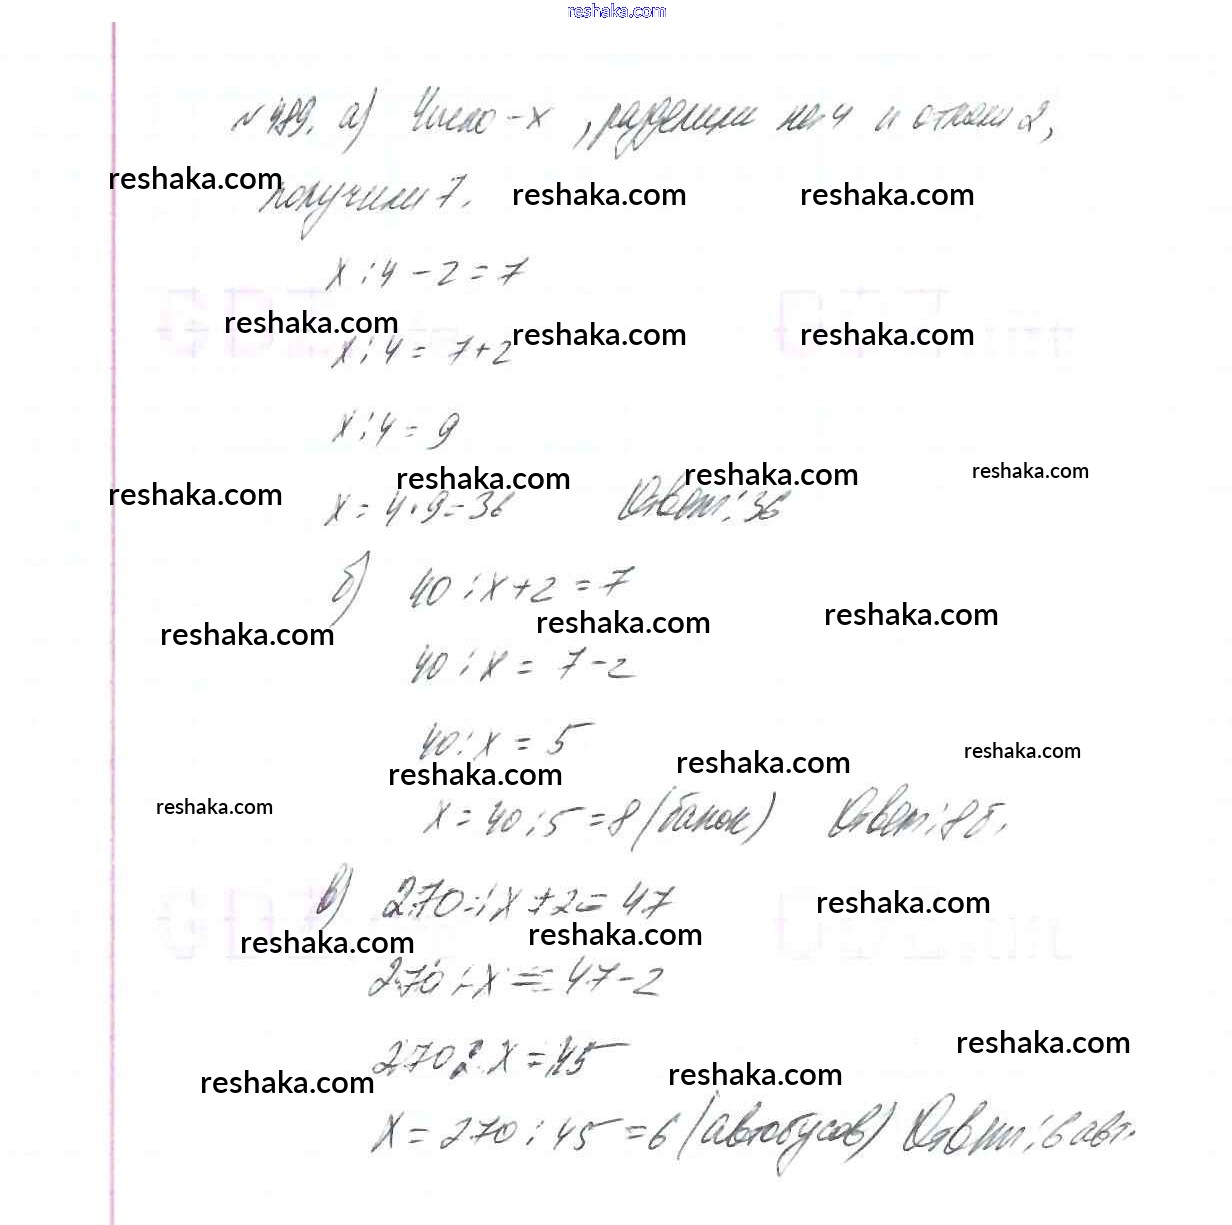 reshaka.com
№ 489. а) Число - x, разделили на 4 и отняли 2,
reshaka.com reshaka.com reshaka.com
получили 7.
x : 4 - 2 = 7
reshaka.com reshaka.com reshaka.com
x : 4 = 7 + 2
x : 4 = 9
reshaka.com reshaka.com reshaka.com reshaka.com
x = 4 · 9 = 36 Ответ: 36
б) 40 : x + 2 = 7
reshaka.com reshaka.com reshaka.com
40 : x = 7 - 2
40 : x = 5
reshaka.com reshaka.com reshaka.com
reshaka.com
x = 40 : 5 = 8 (банок) Ответ: 8 б.
в) 270 : x + 2 = 47
reshaka.com reshaka.com reshaka.com
270 : x = 47 - 2
270 : x = 45
reshaka.com reshaka.com reshaka.com
x = 270 : 45 = 6 (автобусов) Ответ: 6 авт.